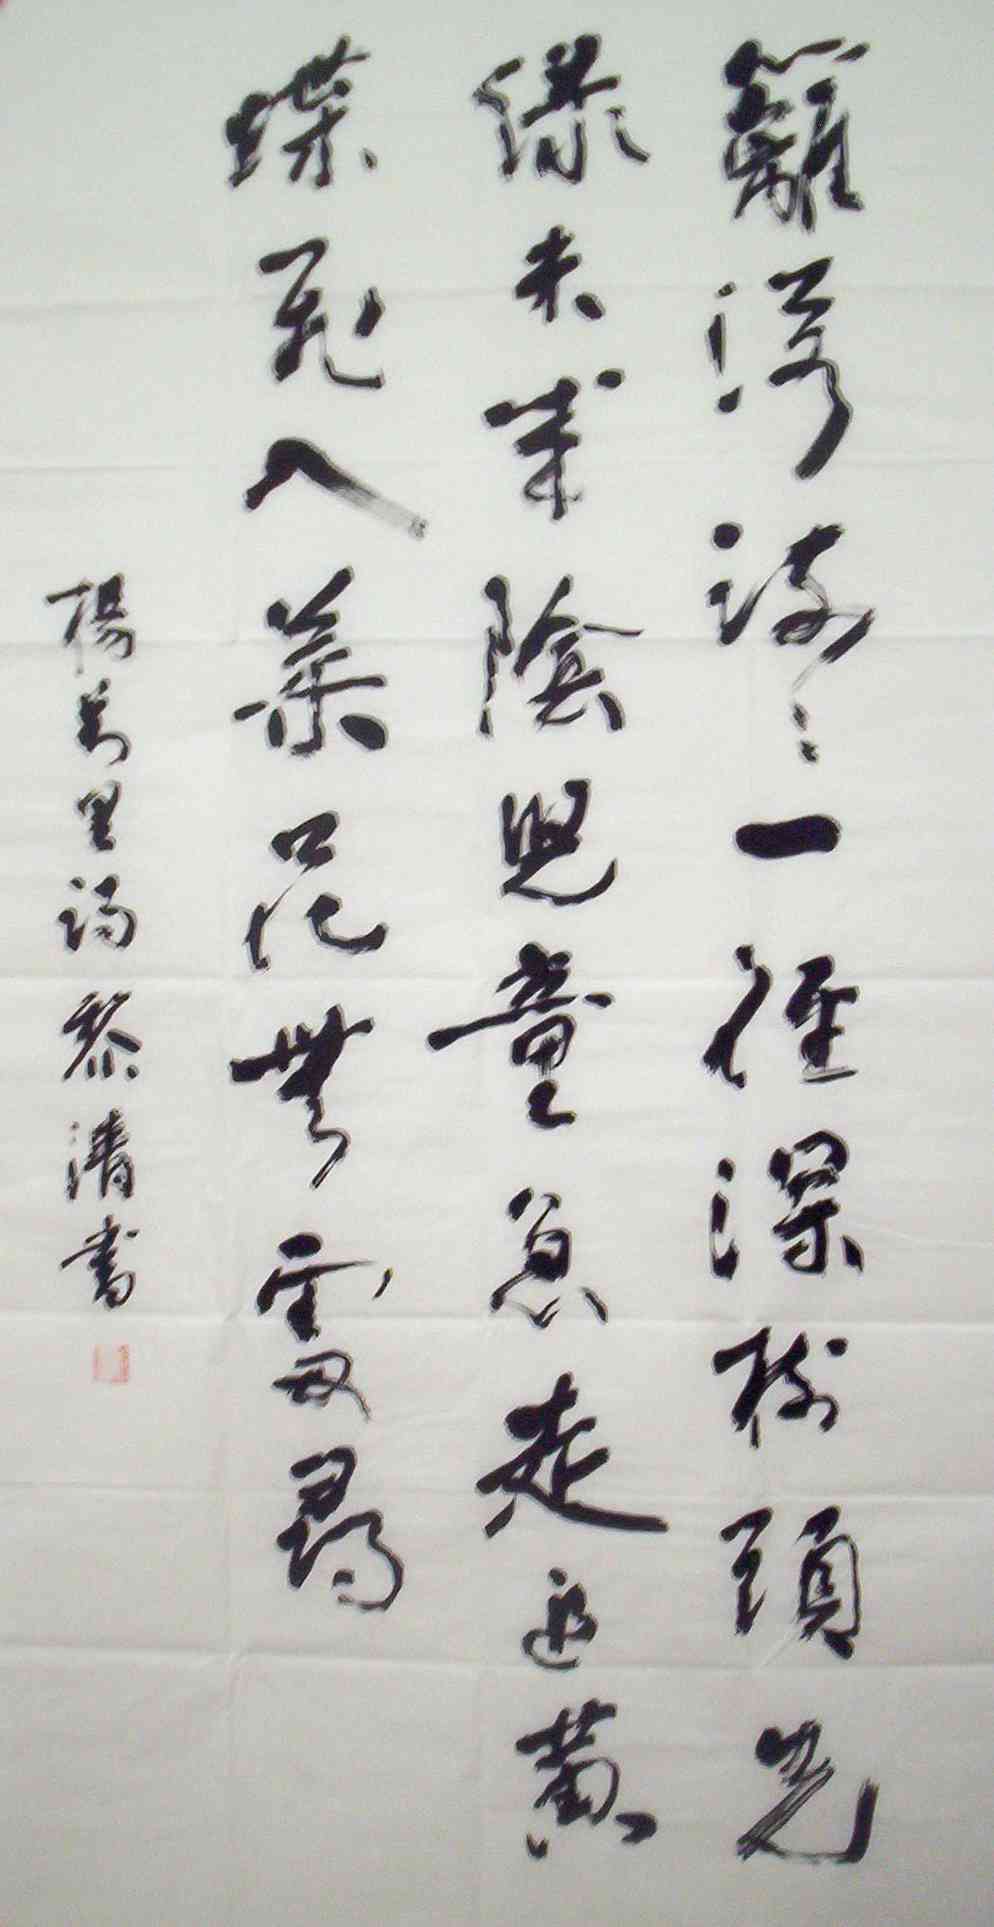 籬落疎々一徑深樹頭先
綠未成陰兒童急走追黃
蝶飛入菜花無處尋
楊萬里詩黎清書